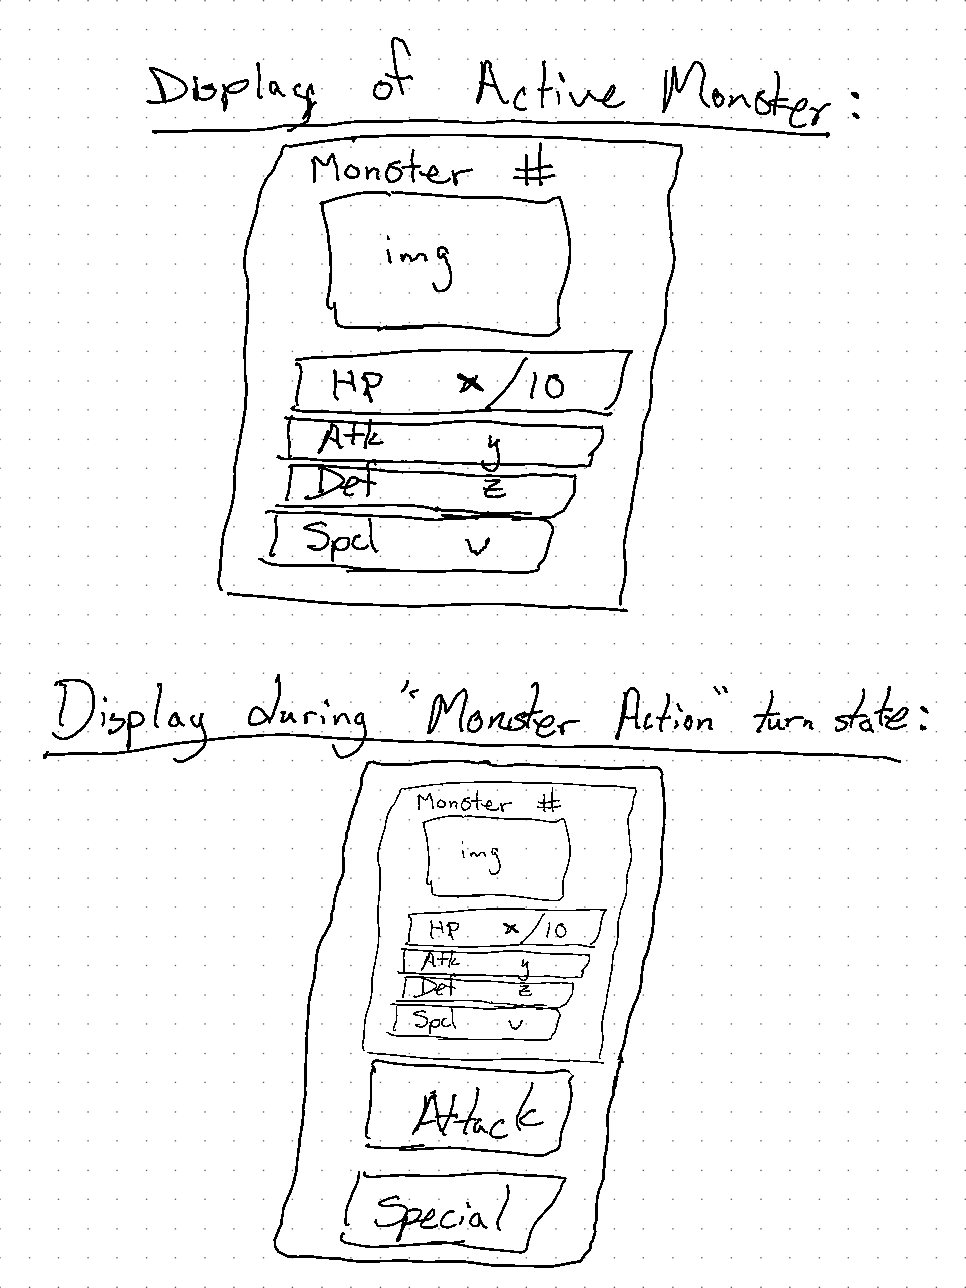 Display of Active Monster:
Monster #
img
HP x/10
Atk y
Def z
Spcl v
Display during "Monster Action" turn state:
Monster #
img
HP x/10
Atk y
Def z
Spcl v
Attack
Special